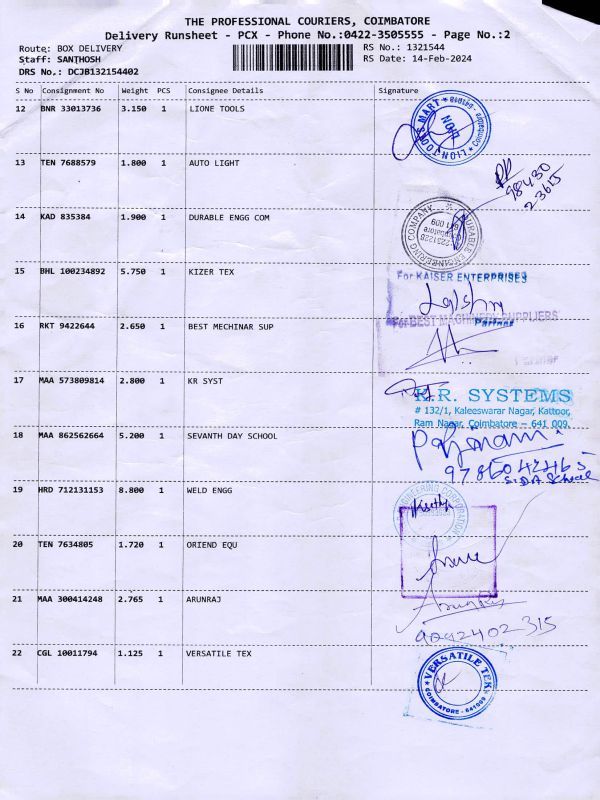 THE PROFESSIONAL COURIERS, COIMBATORE
Delivery Runsheet - PCX - Phone No.:0422-3505555 - Page No.:2
Route: BOX DELIVERY
RS No.: 1321544
Staff: SANTHOSH
RS Date: 14-Feb-2024
DRS No.: DCJB132154402
S No Consignment No Weight PCS Consignee Details Signature
12 BNR 33013736 3.150 1 LIONE TOOLS
LION TOOLS MART * Coimbatore - 641018 *
LION
13 TEN 7688579 1.800 1 AUTO LIGHT
98430
23615
14 KAD 835384 1.900 1 DURABLE ENGG COM
DURABLE ENGINEERING COMPANY
Coimbatore
641 009
15 BHL 100234892 5.750 1 KIZER TEX
For KAISER ENTERPRISES
Partner
16 RKT 9422644 2.650 1 BEST MECHINAR SUP
For BEST MACHINERY SUPPLIERS
Partner
17 MAA 573809814 2.800 1 KR SYST
K.R. SYSTEMS
# 132/1, Kaleeswarar Nagar, Kattoor,
Ram Nagar, Coimbatore – 641 009.
18 MAA 862562664 5.200 1 SEVANTH DAY SCHOOL
S.D.A School
19 HRD 712131153 8.800 1 WELD ENGG
ENGINEERING CORPORATION
20 TEN 7634805 1.720 1 ORIEND EQU
21 MAA 300414248 2.765 1 ARUNRAJ
9092402315
22 CGL 10011794 1.125 1 VERSATILE TEX
VERSATILE TEK
COIMBATORE - 641009